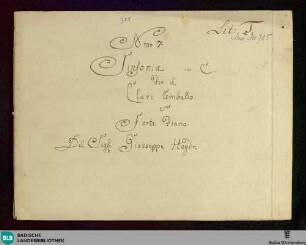 305
Lit: F
Mus. Hs. 305
Nro 7
Sinfonia in C
Per il
Clavi Cembalo
o
Forte Piano
Del Sigr Giuseppe Haydn
BLB
BADISCHE
LANDESBIBLIOTHEK
Baden-Württemberg